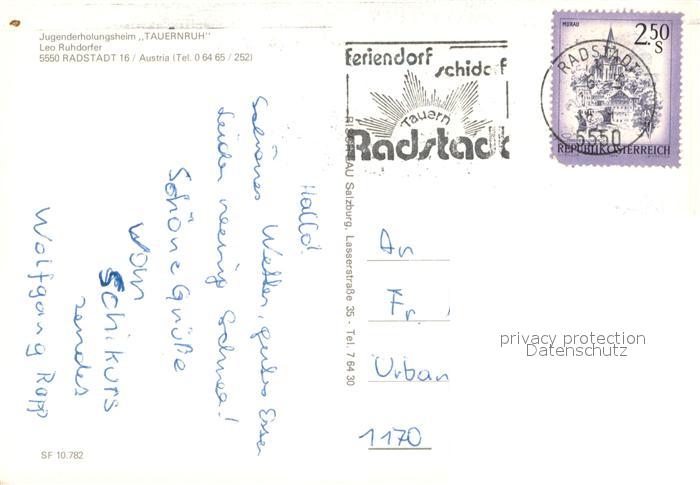 Jugenderholungsheim „TAUERNRUH"
Leo Ruhdorfer
5550 RADSTADT 16 / Austria (Tel. 0 64 65 / 252)
feriendorf
schidorf
Tauern
Radstadt
MURAU
2.50
S
REPUBLIK ÖSTERREICH
RADSTADT
5550
Hallo!
Schönes Wetter, gutes Essen
leider wenig Schnee!
Schöne Grüße
vom
Schikurs
sendet
Wolfgang Rapp
An
Fr.
Urban
1170
privacy protection
Datenschutz
Salzburg, Lasserstraße 35 - Tel. 7 64 30
SF 10.782